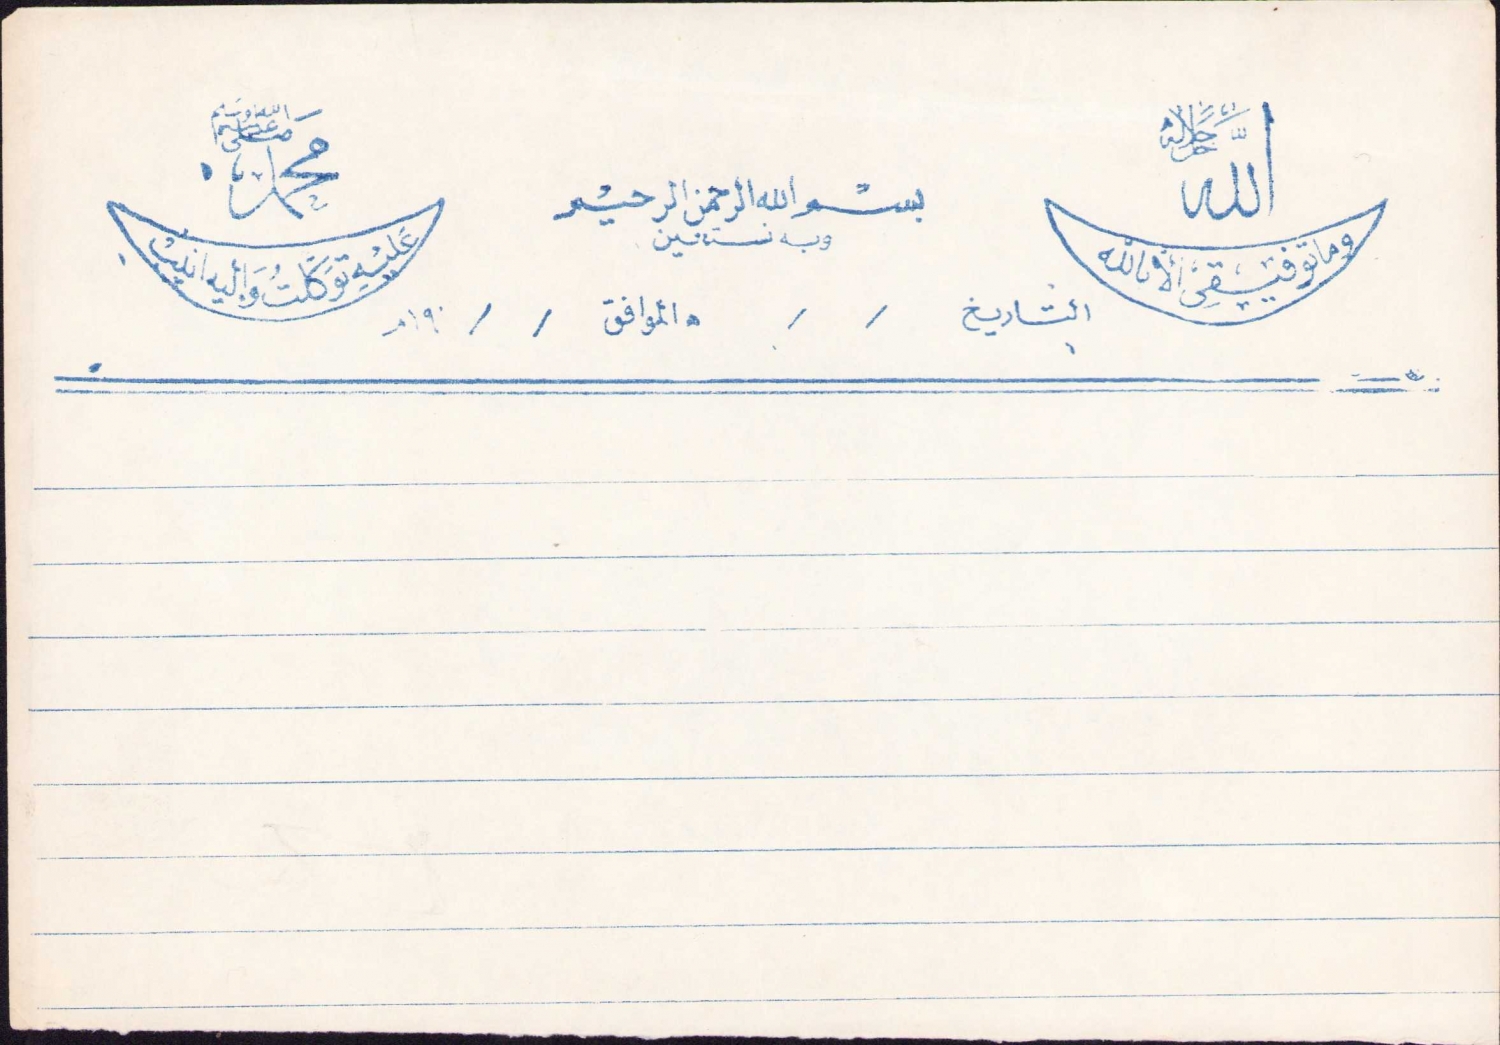 الله جل جلاله
وما توفيقي ألا بالله
بسم الله الرحمن الرحيم
وبه نستعين
محمد صلى الله عليه وسلم
عليه توكلت وأليه انيب
التاريخ / / ه الموافق / / ١٩٠م